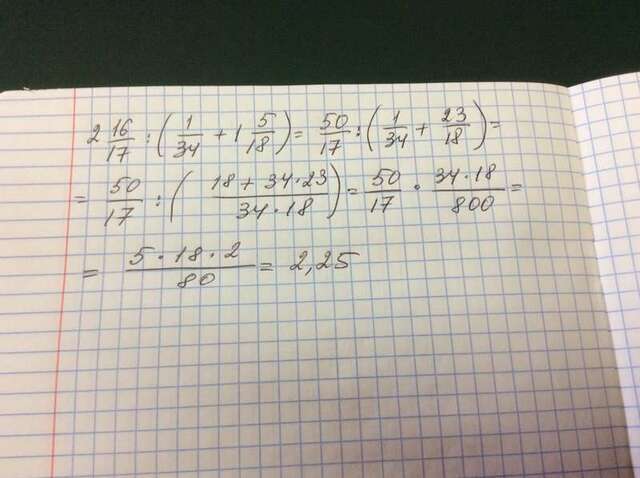 2 16/17 : (1/34 + 1 5/18) = 50/17 : (1/34 + 23/18) =
= 50/17 : (18 + 34·23 / 34·18) = 50/17 · 34·18/800 =
= 5·18·2/80 = 2,25